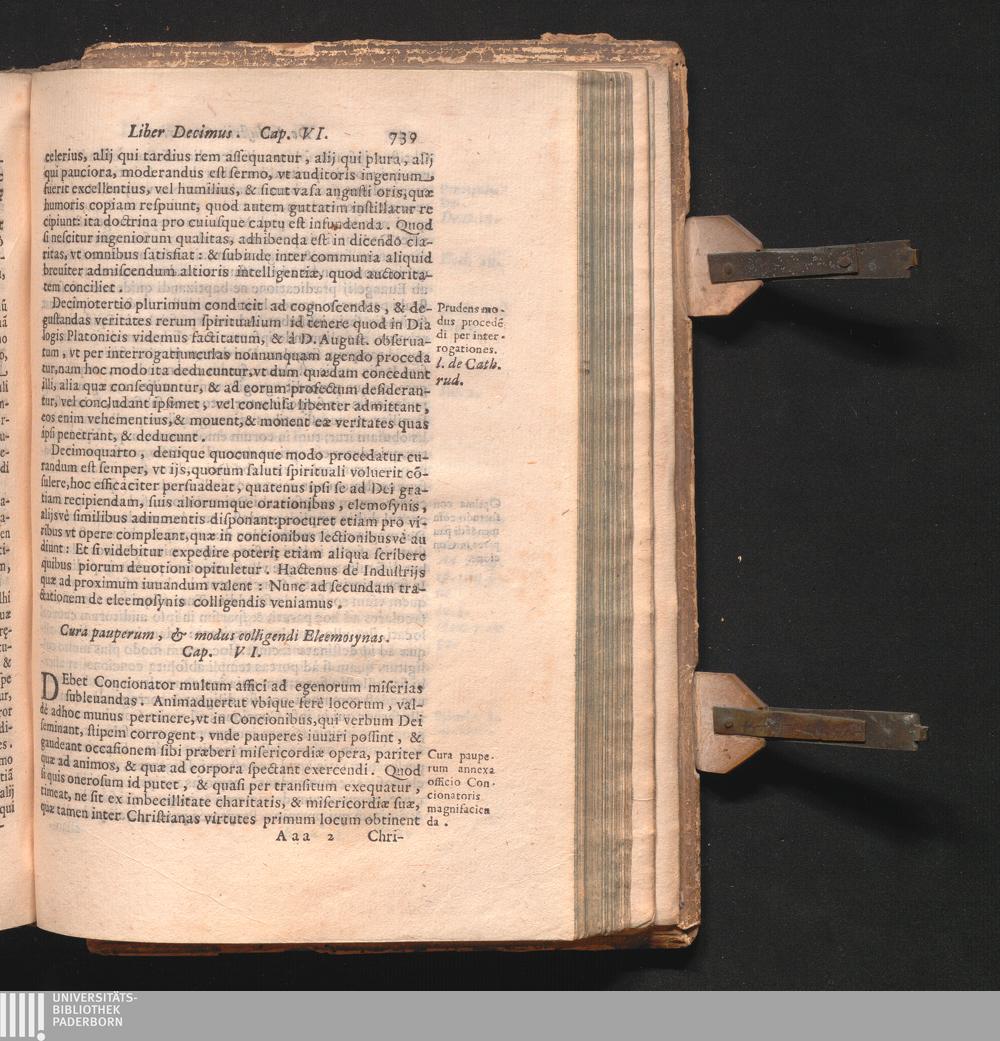 Liber Decimus. Cap. VI. 739
celerius, alij qui tardius rem assequantur, alij qui plura, alij
qui pauciora, moderandus est sermo, vt auditoris ingenium
fuerit excellentius, vel humilius, & sicut vasa angusti oris, quæ
humoris copiam respuunt, quod autem guttatim instillatur re
cipiunt: ita doctrina pro cuiusque captu est infundenda. Quod
si nescitur ingeniorum qualitas, adhibenda est in dicendo cla-
ritas, vt omnibus satisfiat: & subinde inter communia aliquid
breuiter admiscendum altioris intelligentiæ, quod auctorita-
tem conciliet.
Decimotertio plurimum conducit ad cognoscendas, & de-
gustandas veritates rerum spiritualium id tenere quod in Dia
logis Platonicis videmus factitatum, & à D. August. obserua-
tum, vt per interrogatiunculas nonnunquam agendo proceda
tur, nam hoc modo ita deducuntur, vt dum quædam concedunt
illi, alia quæ consequuntur, & ad eorum profectum desideran-
tur, vel concludant ipsimet, vel conclusa libenter admittant,
eos enim vehementius, & mouent, & monent eæ veritates quas
ipsi penetrant, & deducunt.
Prudens mo-
dus procedē
di per inter-
rogationes.
l. de Cath.
rud.
Decimoquarto, denique quocunque modo procedatur cu-
randum est semper, vt ijs, quorum saluti spirituali voluerit cō-
sulere, hoc efficaciter persuadeat, quatenus ipsi se ad Dei gra-
tiam recipiendam, suis aliorumque orationibus, elemosynis,
alijsvè similibus adiumentis disponant: procuret etiam pro vi-
ribus vt opere compleant, quæ in concionibus lectionibusvè au
diunt: Et si videbitur expedire poterit etiam aliqua scribere
quibus piorum deuotioni opituletur. Hactenus de Industrijs
quæ ad proximum iuuandum valent: Nunc ad secundam tra-
ctationem de eleemosynis colligendis veniamus.
Cura pauperum, & modus colligendi Eleemosynas.
Cap. VI.
DEbet Concionator multum affici ad egenorum miserias
subleuandas. Animaduertat vbique ferè locorum, val-
dè adhoc munus pertinere, vt in Concionibus, qui verbum Dei
seminant, stipem corrogent, vnde pauperes iuuari possint, &
gaudeant occasionem sibi præberi misericordiæ opera, pariter
quæ ad animos, & quæ ad corpora spectant exercendi. Quod
si quis onerosum id putet, & quasi per transitum exequatur,
timeat, ne sit ex imbecillitate charitatis, & misericordiæ suæ,
quæ tamen inter Christianas virtutes primum locum obtinent
Cura paupe-
rum annexa
officio Con-
cionatoris
magnifacien
da.
Aaa 2 Chri-
UNIVERSITÄTS-
BIBLIOTHEK
PADERBORN